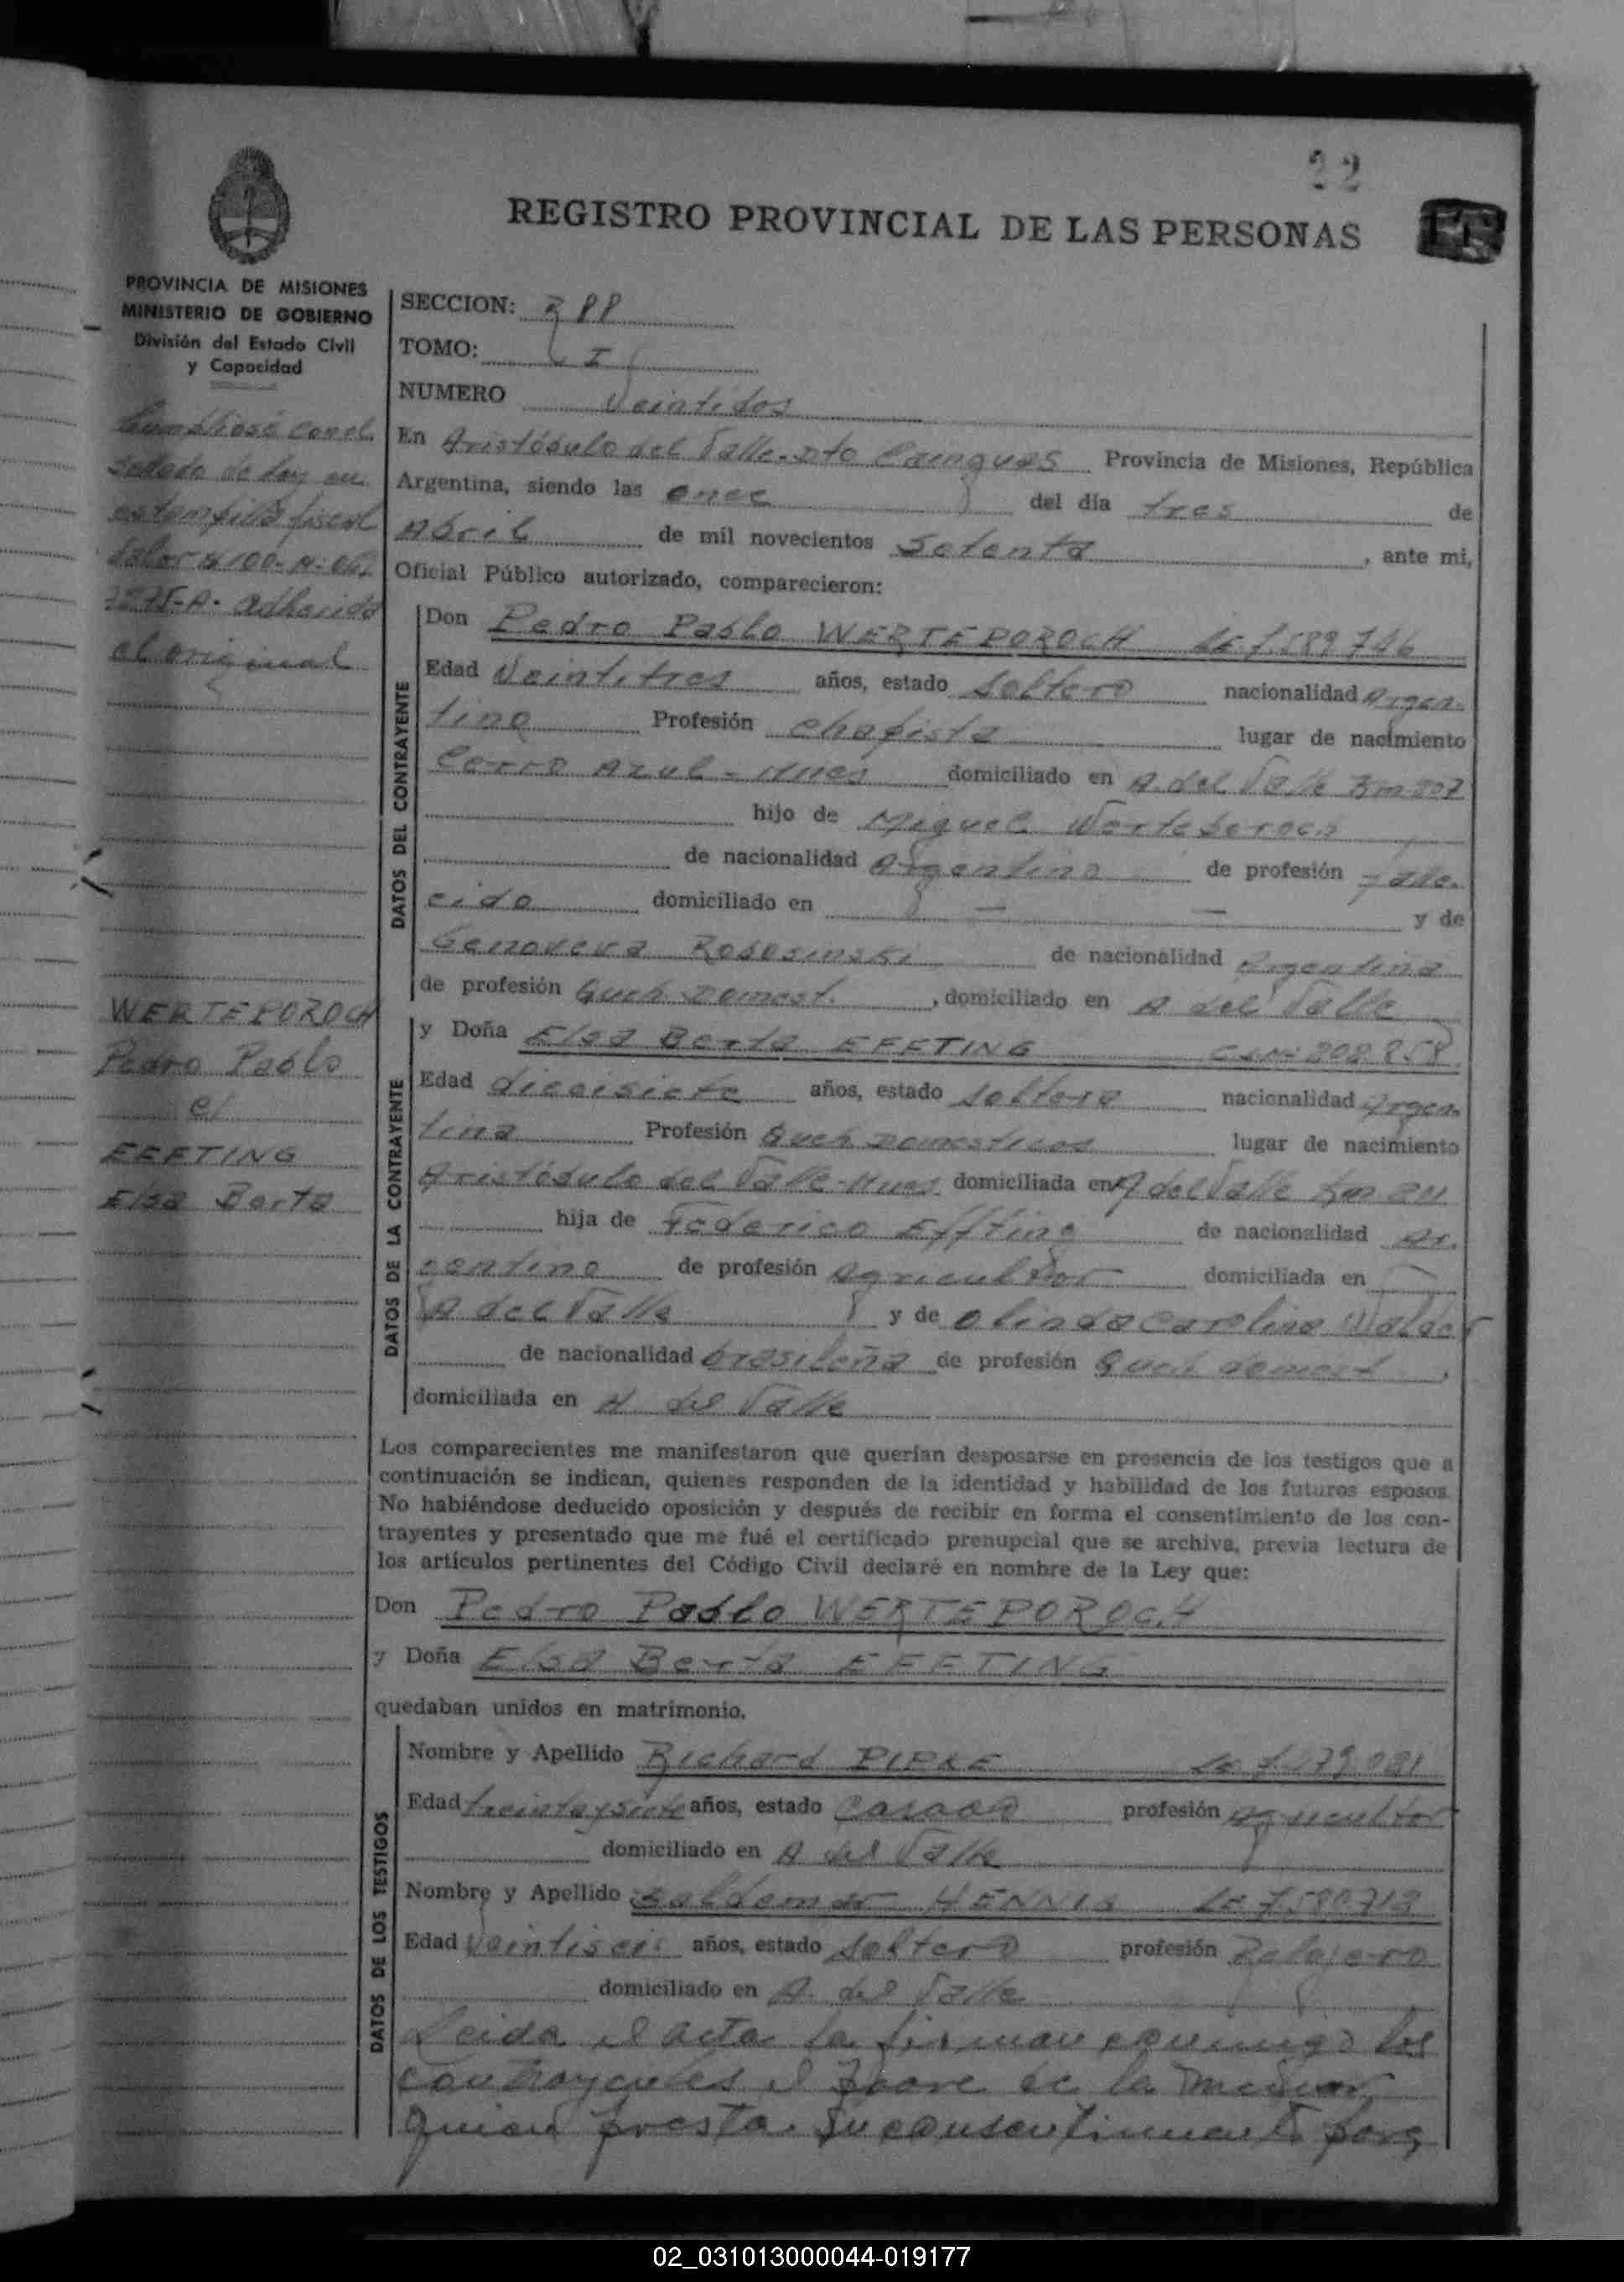 22
REGISTRO PROVINCIAL DE LAS PERSONAS
PROVINCIA DE MISIONES
MINISTERIO DE GOBIERNO
División del Estado Civil
y Capacidad
SECCION: RPP
TOMO: I
NUMERO Veintidos
En Aristóbulo del Valle-Dto Cainguas Provincia de Misiones, República
Argentina, siendo las once del día tres de
Abril de mil novecientos Setenta, ante mi,
Oficial Público autorizado, comparecieron:
sellado de ley en
estampilla fiscal
Valor $ 100-
adherida
al original
WERTEPOROCH
Pedro Pablo
c/
EFFTING
Elsa Berta
DATOS DEL CONTRAYENTE
Don Pedro Pablo WERTEPOROCH LE 7.589.746
Edad Veintitres años, estado Soltero nacionalidad Argen-
tina Profesión Chapista lugar de nacimiento
Cerro Azul-Mnes domiciliado en A. del Valle Km 207
hijo de Miguel Werteporoch
de nacionalidad Argentina de profesión falle-
cido domiciliado en — — y de
Genoveva Rososinski de nacionalidad Argentina
de profesión Queh Domest., domiciliado en A del Valle
DATOS DE LA CONTRAYENTE
y Doña Elsa Berta EFFTING 202.858
Edad diecisiete años, estado soltera nacionalidad Argen-
tina Profesión Queh Domesticos lugar de nacimiento
Aristóbulo del Valle-Mnes. domiciliada en A del Valle Km
hija de Federico Effting de nacionalidad Ar-
gentina de profesión Agricultor domiciliada en
A del Valle y de Olinda Carolina
de nacionalidad brasileña de profesión Queh domest,
domiciliada en A. del Valle
Los comparecientes me manifestaron que querían desposarse en presencia de los testigos que a
continuación se indican, quienes responden de la identidad y habilidad de los futuros esposos.
No habiéndose deducido oposición y después de recibir en forma el consentimiento de los con-
trayentes y presentado que me fué el certificado prenupcial que se archiva, previa lectura de
los artículos pertinentes del Código Civil declaré en nombre de la Ley que:
Don Pedro Pablo WERTEPOROCH
y Doña Elsa Berta EFFTING
quedaban unidos en matrimonio.
DATOS DE LOS TESTIGOS
Nombre y Apellido Richard PIPKE LE
Edad treinta y siete años, estado Casado profesión Agricultor
domiciliado en A del Valle
Nombre y Apellido Baldemar HENNIG LE
Edad Veintiseis años, estado Soltero profesión Relojero
domiciliado en A. del Valle
Leida el acta la firman conmigo los
contrayentes el padre de la menor
quien presta su consentimiento para
02_031013000044-019177